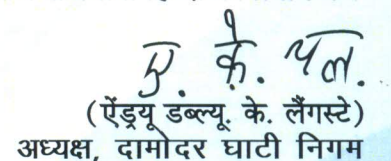 ए. के. पल.
(ऐंड्रयू डब्ल्यू. के. लैंगस्टे)
अध्यक्ष, दामोदर घाटी निगम